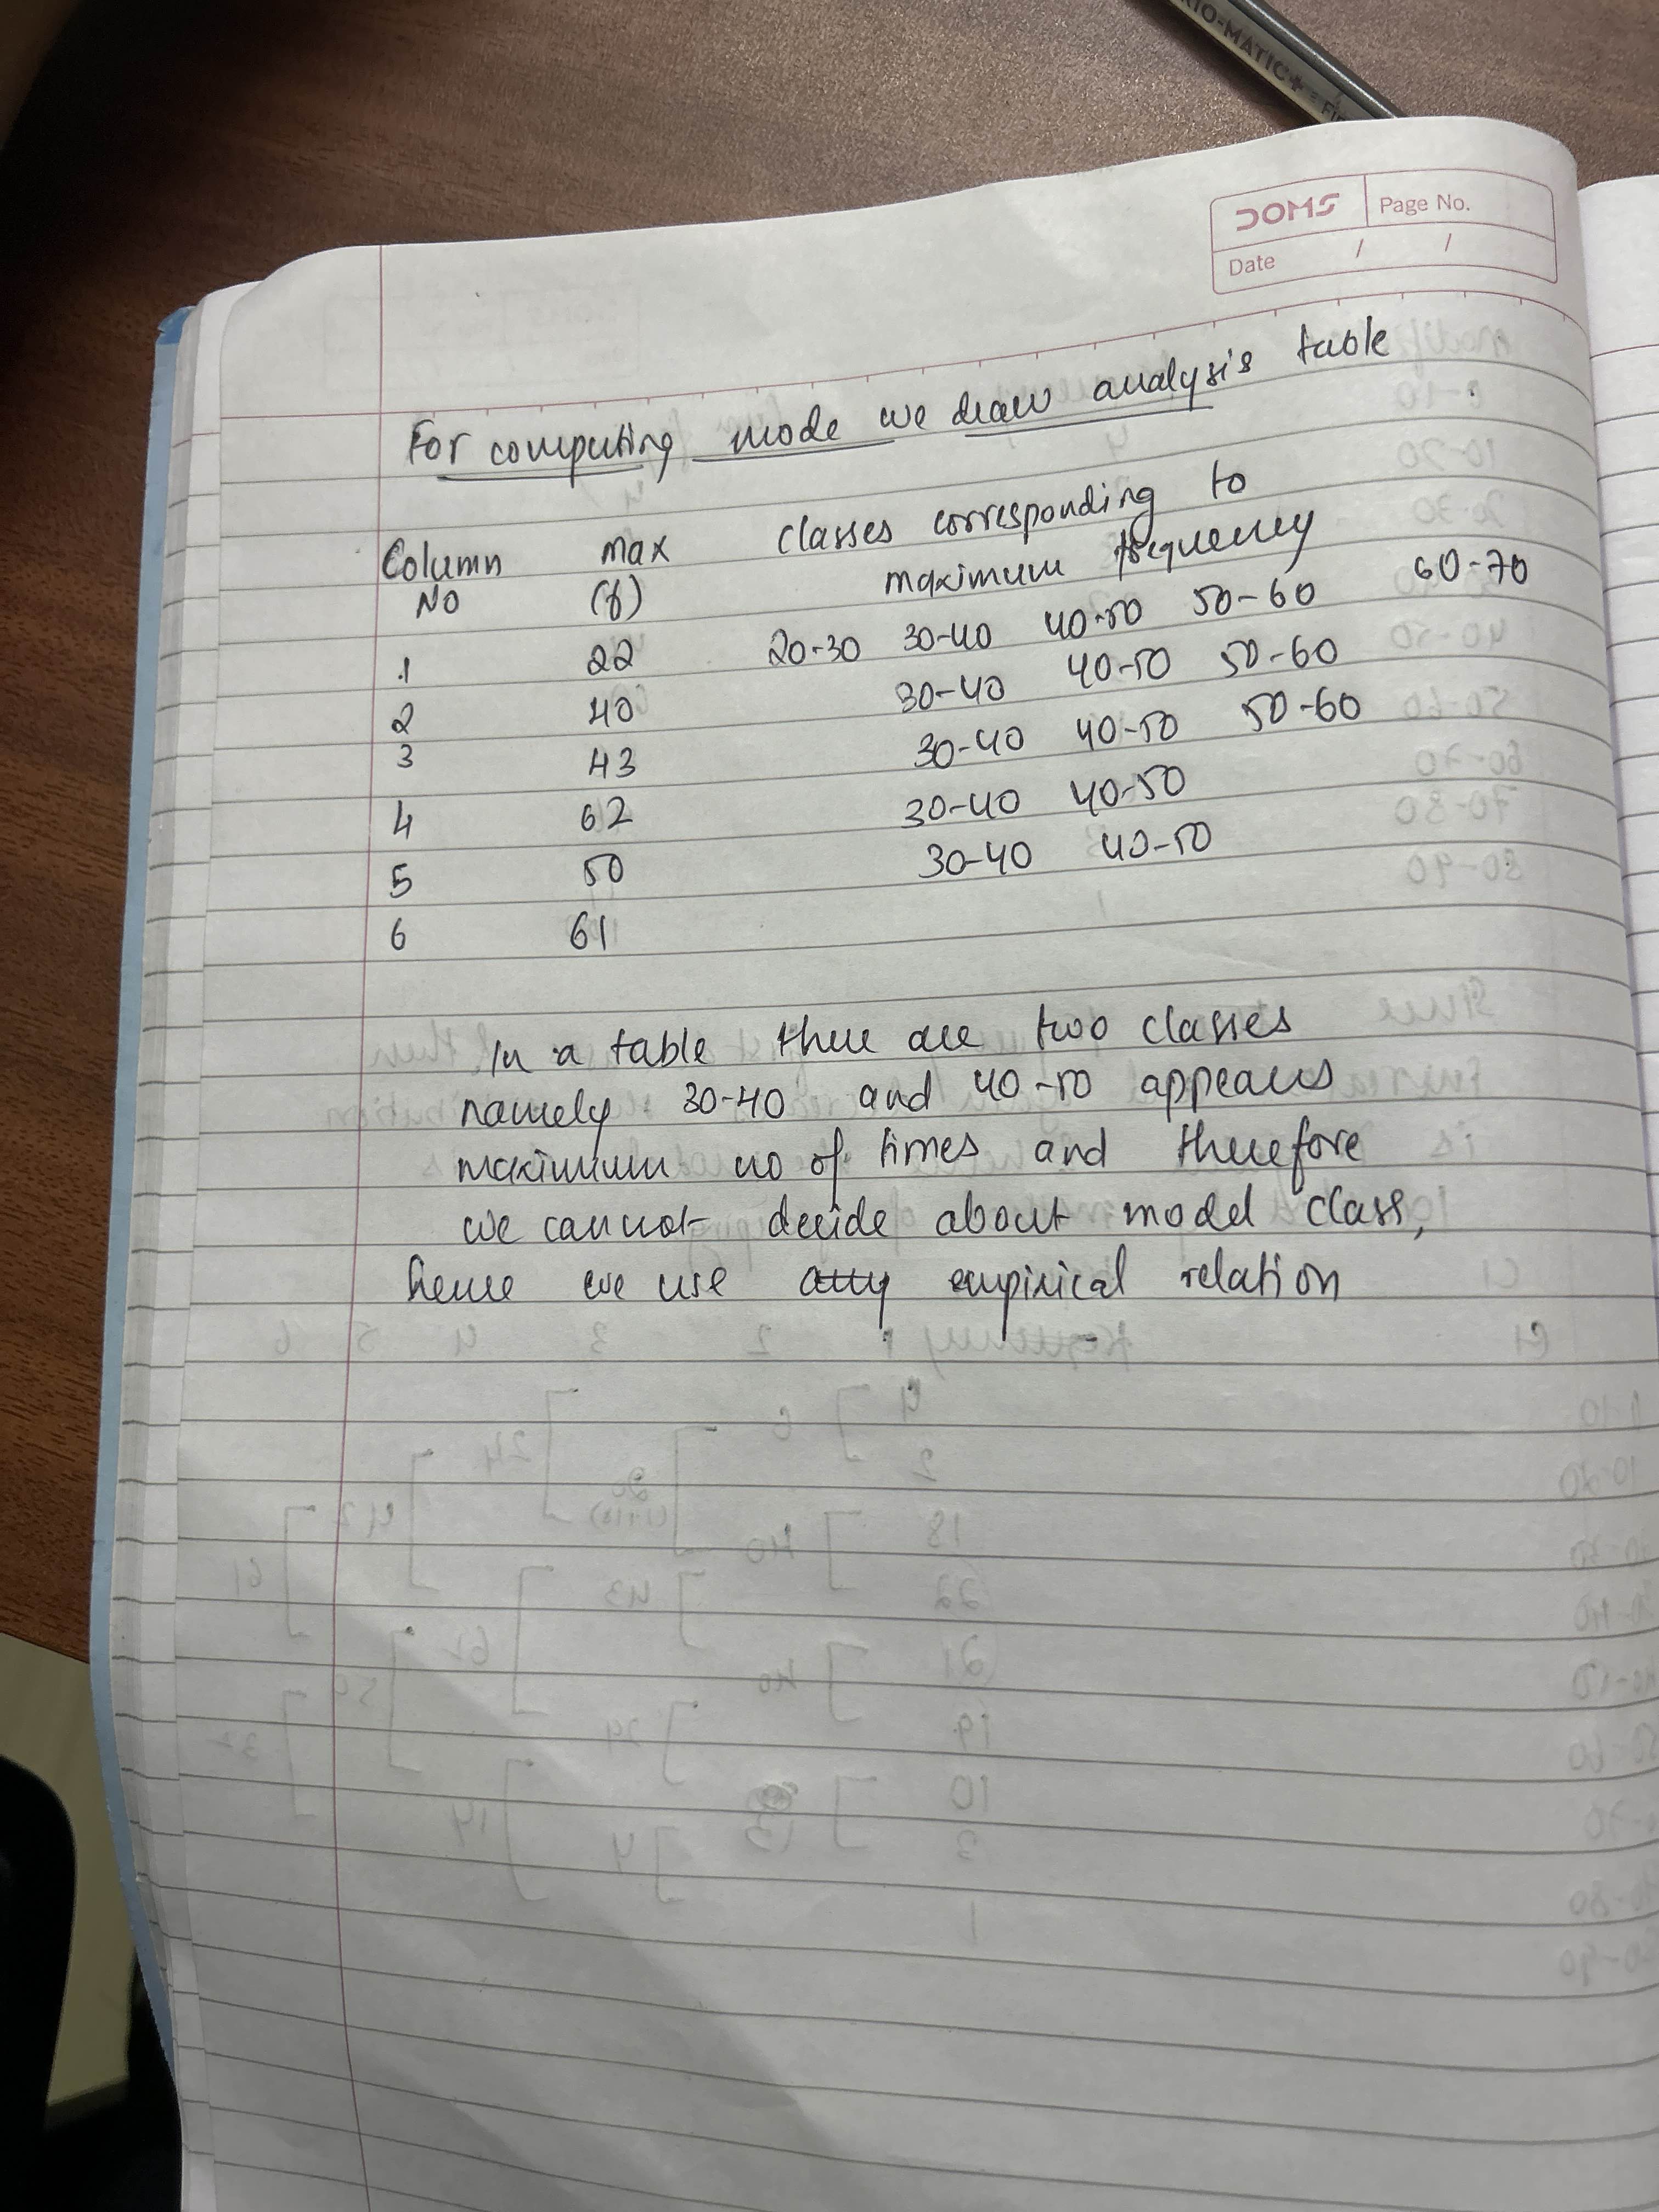 RIO-MATIC
DOMS
Page No.
Date / /
For computing mode we draw analysis table
Column No
max (f)
classes corresponding to
maximum frequency
1 22 20-30 30-40 40-50 50-60 60-70
2 40 30-40 40-50 50-60
3 43 30-40 40-50 50-60
4 62 30-40 40-50
5 50 30-40 40-50
6 61
In a table there are two classes
namely 30-40 and 40-50 appears
maximum no of times and therefore
we cannot decide about model class,
hence we use any empirical relation